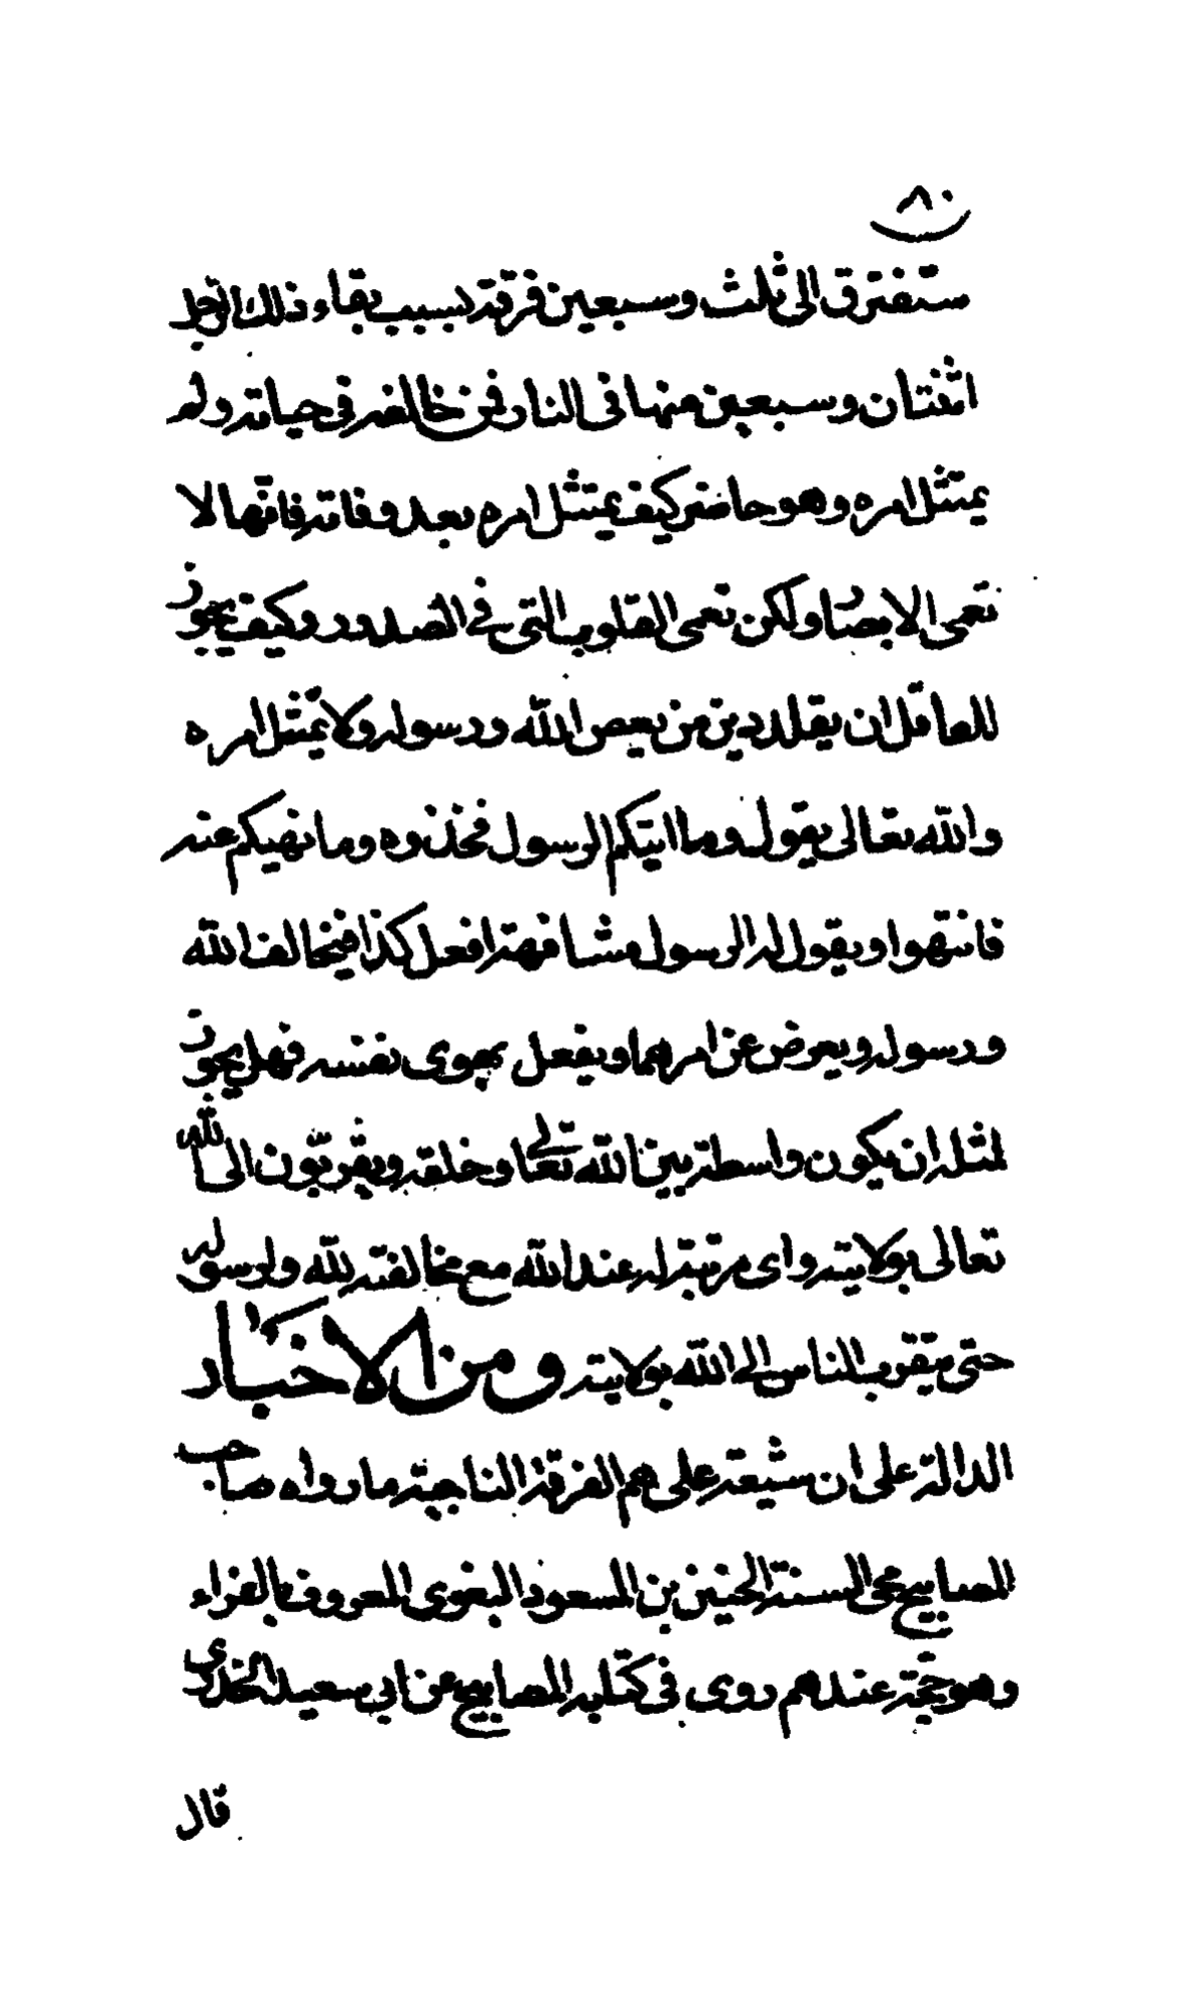 ٨٠
ستفترق الى ثلث وسبعين فرقة بسبب بقاء ذلك الرجل
اثنتان وسبعين منها فى النار فمن خالفه في حياته ولم
يمتثل امره وهو حاضر كيف يمتثل امره بعد وفاته فانها لا
تعمى الابصار ولكن تعمى القلوب التي في الصدور وكيف يجوز
للعاقل ان يقلد دين من يعص الله ورسوله ولا يمتثل امره
والله تعالى يقول وما اتيكم الرسول فخذوه وما نهيكم عنه
فانتهوا ويقول له الرسول مشافهة افعل كذا فيخالف الله
ورسوله ويعرض عن امرهما ويفعل بهوى نفسه فهل يجوز
لمثله ان يكون واسطة بين الله تعالى وخلقه ويقربون الى الله
تعالى بولايته واى مرتبة له عند الله مع مخالفته لله ولرسوله
حتى يتقرب الناس الى الله بولايته ومن الاخبار
الدالة على ان شيعة على هم الفرقة الناجية ما رواه صاحب
المصابيح محى السنة الحسين بن المسعود البغوى المعروف بالفراء
وهو حجة عندهم روى فى كتابه المصابيح عن ابي سعيد الخدرى
قال